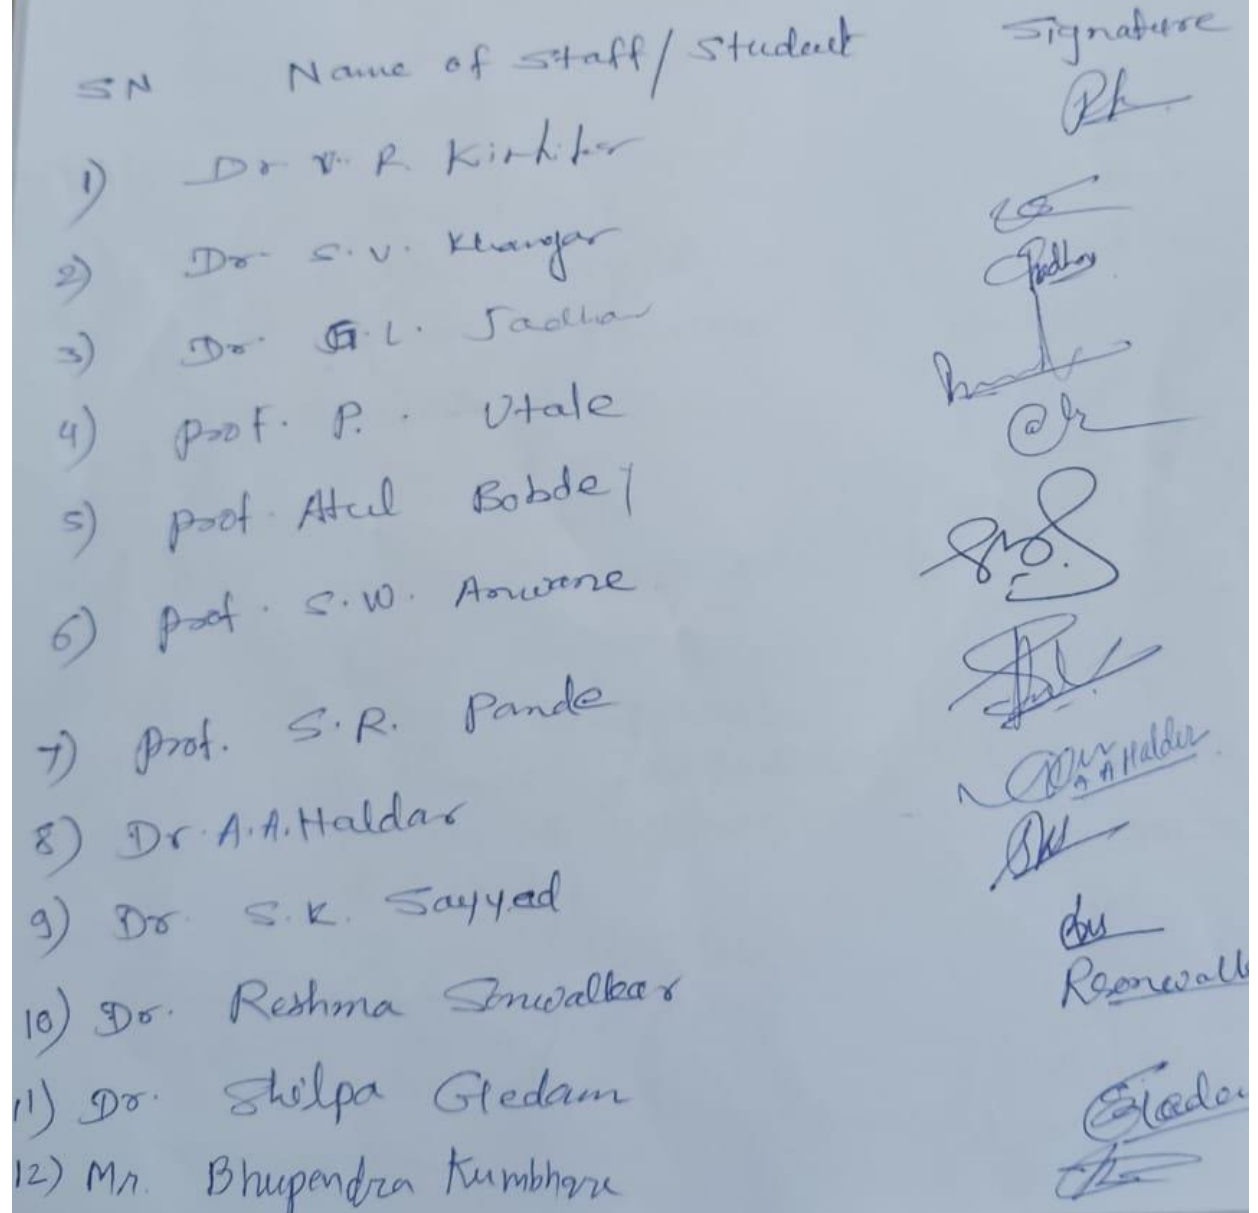 SN Name of Staff/Student Signature
1) Dr V. R. Kirhikar
2) Dr. S.V. Khangar
3) Dr. G.L. Jadhav
4) Prof. P. Utale
5) Prof. Atul Bobdey
6) Prof. S.W. Anwane
7) Prof. S.R. Pande
8) Dr. A.A. Haldar A A Halder
9) Dr. S.K. Sayyed
10) Dr. Reshma Sonwalkar
11) Dr. Shilpa Gedam
12) Mr. Bhupendra Kumbhare